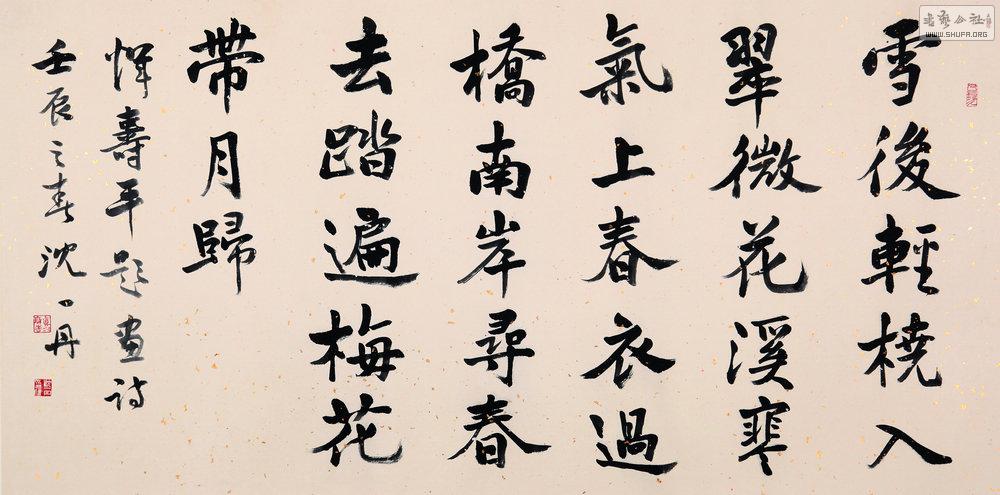 雪後輕橈入
翠微花溪寒
氣上春衣過
橋南岸尋春
去踏遍梅花
帶月歸
惲壽平題畫詩
壬辰之春沈一丹
書藝公社
WWW.SHUFA.ORG